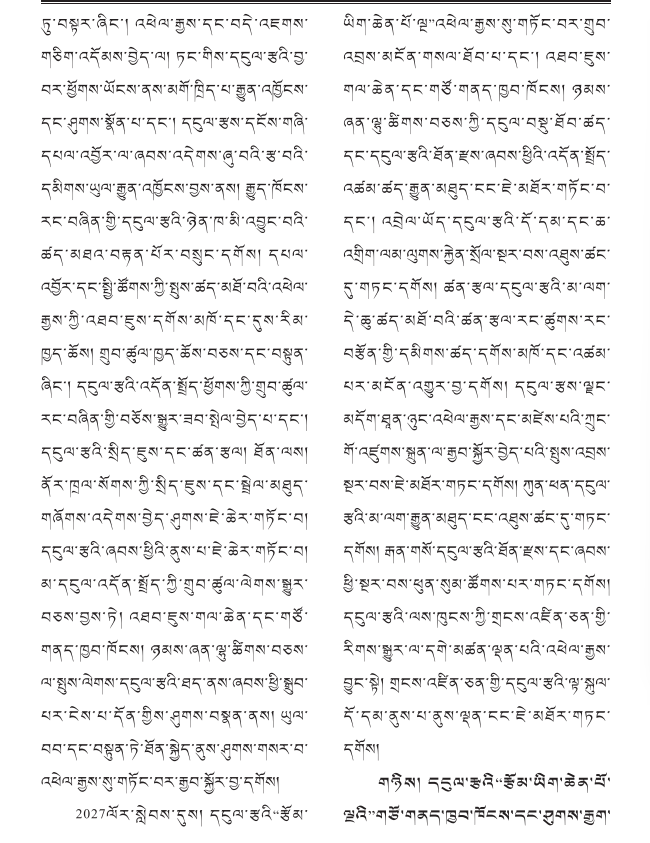 ཏུ་བསྟར་ཞིང་། འཕེལ་རྒྱས་དང་བདེ་འཇགས་
གཅིག་འདོམས་བྱེད་ལ། ཏང་གིས་དངུལ་རྩའི་བྱ་
བར་ཕྱོགས་ཡོངས་ནས་མགོ་ཁྲིད་པ་རྒྱུན་འཁྱོངས་
དང་ཤུགས་སྣོན་པ་དང་། དངུལ་རྩས་དངོས་གཞི་
དཔལ་འབྱོར་ལ་ཞབས་འདེགས་ཞུ་བའི་རྩ་བའི་
དམིགས་ཡུལ་རྒྱུན་འཁྱོངས་བྱས་ནས། རྒྱུད་ཁོངས་
རང་བཞིན་གྱི་དངུལ་རྩའི་ཉེན་ཁ་མི་འབྱུང་བའི་
ཚད་མཐའ་བརྟན་པོར་བསྲུང་དགོས། དཔལ་
འབྱོར་དང་སྤྱི་ཚོགས་ཀྱི་སྤུས་ཚད་མཐོ་བའི་འཕེལ་
རྒྱས་ཀྱི་འཐབ་ཇུས་དགོས་མཁོ་དང་དུས་རིམ་
ཁྱད་ཆོས། གྲུབ་ཚུལ་ཁྱད་ཆོས་བཅས་དང་བསྟུན་
ཞིང་། དངུལ་རྩའི་འདོན་སྤྲོད་ཕྱོགས་ཀྱི་གྲུབ་ཚུལ་
རང་བཞིན་གྱི་བཅོས་སྒྱུར་ཟབ་སྤེལ་བྱེད་པ་དང་།
དངུལ་རྩའི་སྲིད་ཇུས་དང་ཚན་རྩལ། ཐོན་ལས།
ནོར་ཁྲལ་སོགས་ཀྱི་སྲིད་ཇུས་དང་སྦྲེལ་མཐུད་
གཞོགས་འདེགས་བྱེད་ཤུགས་ཇེ་ཆེར་གཏོང་བ།
དངུལ་རྩའི་ཞབས་ཕྱིའི་ནུས་པ་ཇེ་ཆེར་གཏོང་བ།
མ་དངུལ་འདོན་སྤྲོད་ཀྱི་གྲུབ་ཚུལ་ལེགས་སྒྱུར་
བཅས་བྱས་ཏེ། འཐབ་ཇུས་གལ་ཆེན་དང་གཙོ་
གནད་ཁྱབ་ཁོངས། ཉམས་ཞན་ལྷུ་ཚིགས་བཅས་
ལ་སྤུས་ལེགས་དངུལ་རྩའི་ཐད་ནས་ཞབས་ཕྱི་སྒྲུབ་
པར་ངེས་པ་དོན་གྱིས་ཤུགས་བསྣན་ནས། ཡུལ་
བབ་དང་བསྟུན་ཏེ་ཐོན་སྐྱེད་ནུས་ཤུགས་གསར་བ་
འཕེལ་རྒྱས་སུ་གཏོང་བར་རྒྱབ་སྐྱོར་བྱ་དགོས།
2027ལོར་སླེབས་དུས། དངུལ་རྩའི་“རྩོམ་
ཡིག་ཆེན་པོ་ལྔ”འཕེལ་རྒྱས་སུ་གཏོང་བར་གྲུབ་
འབྲས་མངོན་གསལ་ཐོབ་པ་དང་། འཐབ་ཇུས་
གལ་ཆེན་དང་གཙོ་གནད་ཁྱབ་ཁོངས། ཉམས་
ཞན་ལྷུ་ཚིགས་བཅས་ཀྱི་དངུལ་བསྡུ་ཐོབ་ཚད་
དང་དངུལ་རྩའི་ཐོན་རྫས་ཞབས་ཕྱིའི་འདོན་སྤྲོད་
འཚམ་ཚད་རྒྱུན་མཐུད་ངང་ཇེ་མཐོར་གཏོང་བ་
དང་། འབྲེལ་ཡོད་དངུལ་རྩའི་དོ་དམ་དང་ཆ་
འགྲིག་ལམ་ལུགས་རྐྱེན་སྲོལ་སྔར་བས་འཐུས་ཚང་
དུ་གཏང་དགོས། ཚན་རྩལ་དངུལ་རྩའི་མ་ལག་
དེ་ཆུ་ཚད་མཐོ་བའི་ཚན་རྩལ་རང་ཚུགས་རང་
བརྩོན་གྱི་དམིགས་ཚད་དགོས་མཁོ་དང་འཚམ་
པར་མངོན་འགྱུར་བྱ་དགོས། དངུལ་རྩས་ལྗང་
མདོག་ཐྭན་ཉུང་འཕེལ་རྒྱས་དང་མཛེས་པའི་ཀྲུང་
གོ་འཛུགས་སྐྲུན་ལ་རྒྱབ་སྐྱོར་བྱེད་པའི་སྤུས་འབྲས་
སྔར་བས་ཇེ་མཐོར་གཏང་དགོས། ཀུན་ཕན་དངུལ་
རྩའི་མ་ལག་རྒྱུན་མཐུད་ངང་འཐུས་ཚང་དུ་གཏང་
དགོས། རྒན་གསོ་དངུལ་རྩའི་ཐོན་རྫས་དང་ཞབས་
ཕྱི་སྔར་བས་ཕུན་སུམ་ཚོགས་པར་གཏང་དགོས།
དངུལ་རྩའི་ལས་ཁུངས་ཀྱི་གྲངས་འཛིན་ཅན་གྱི་
རིགས་སྒྱུར་ལ་དགེ་མཚན་ལྡན་པའི་འཕེལ་རྒྱས་
བྱུང་སྟེ། གྲངས་འཛིན་ཅན་གྱི་དངུལ་རྩའི་ལྟ་སྐུལ་
དོ་དམ་ནུས་པ་ནུས་ལྡན་ངང་ཇེ་མཐོར་གཏང་
དགོས།
གཉིས། དངུལ་རྩའི“རྩོམ་ཡིག་ཆེན་པོ་
ལྔའི”གཙོ་གནད་ཁྱབ་ཁོངས་དང་ཤུགས་རྒྱག་